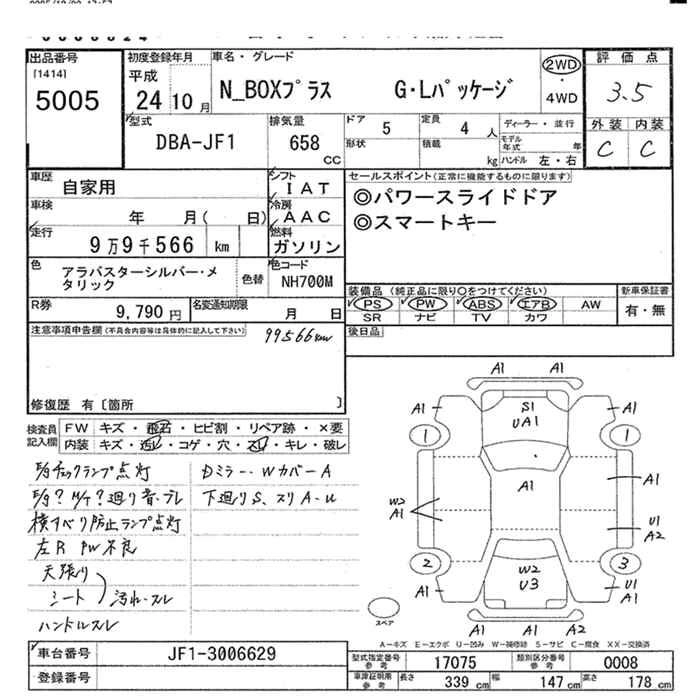 出品番号
[1414]
5005
初度登録年月
平成
24年10月
車名・グレード
N_BOXプラス G・Lパッケージ
2WD
・
4WD
評価点
3.5
外装 内装
C C
型式
DBA-JF1
排気量
658
CC
ドア 5
定員 4人
形状
積載 kg
ディーラー・並行
モデル年式 年
ハンドル 左・右
車歴
自家用
シフト
IAT
車検
年 月( 日)
冷房
AAC
走行
9万9千566 km
燃料
ガソリン
色
アラバスターシルバー・メタリック
色替
色コード
NH700M
R券
9,790円
名変通知期限
月 日
セールスポイント(正常に機能するものに限ります)
◎パワースライドドア
◎スマートキー
装備品(純正品に限り○をつけてください)
PS PW ABS エアB AW
SR ナビ TV カワ
新車保証書
有・無
後日品
注意事項申告欄(不具合内容等は具体的に記入して下さい)
99566km
修復歴 有〔箇所 〕
検査員記入欄
FW キズ・飛石・ヒビ割・リペア跡・×要
内装 キズ・汚レ・コゲ・穴・スレ・キレ・破レ
E/gチェックランプ点灯
横すべり防止ランプ点灯
左R PW不良
天張り
シート
汚れ・スレ
ハンドルスレ
Dミラー・WカバーA
下廻りS、スリA-U
A1 A1
A1 S1 A1
UA1
1 1
A1
A1
W2
A1
U1
A2
2 W2 3
U3
A1 U1
A1
A1 A1 A2
スペア
A-キズ E-エクボ U-凹み W-補修跡 S-サビ C-腐食 XX-交換済
車台番号
JF1-3006629
登録番号
型式指定番号 参考
17075
類別区分番号 参考
0008
車庫証明用 参考
長さ 339 cm 幅 147 cm 高さ 178 cm